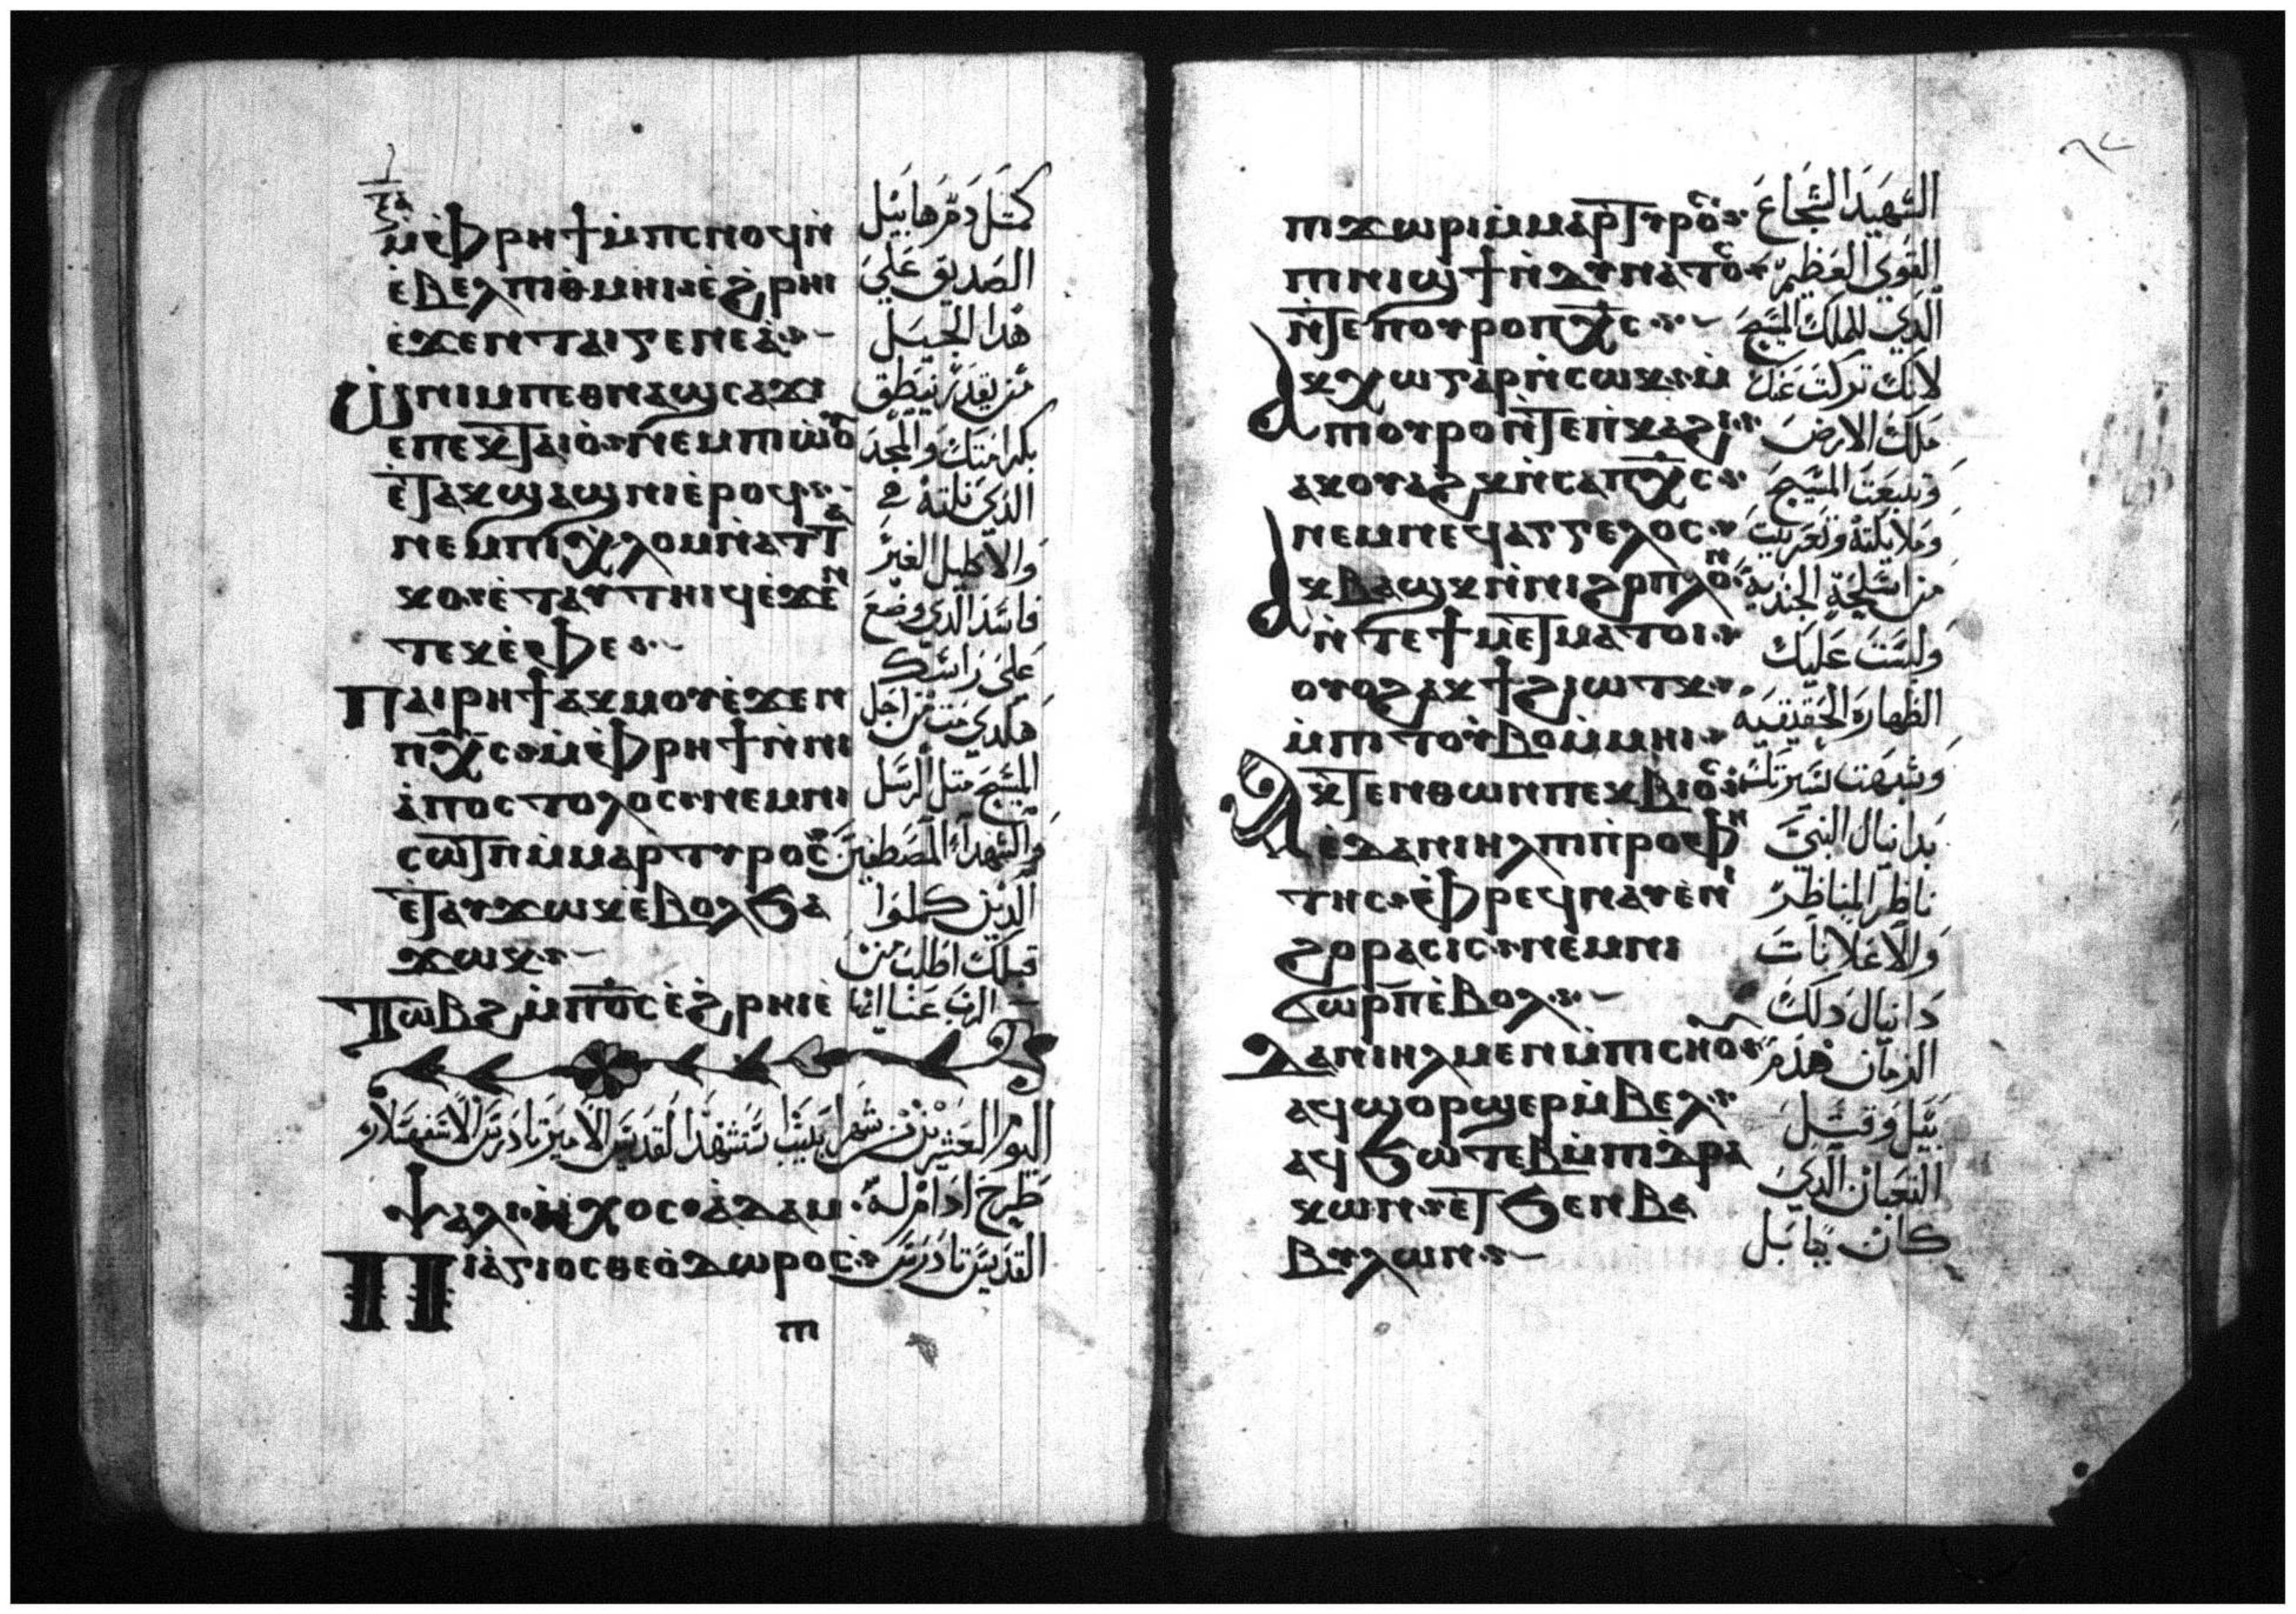 ⲙ̀ⲫⲣⲏϯ ⲙ̀ⲡⲥⲛⲟϥ ⲛ̀ كمثل دم هابيل
ⲁ̀ⲃⲉⲗ ⲡⲓⲑⲙⲏⲓ ⲉ̀ϩⲣⲏⲓ الصديق علي
ⲉ̀ϫⲉⲛ ⲧⲁⲓⲅⲉⲛⲉⲁ̀ هذا الجيل
ⲛⲓⲙ ⲡⲉⲑⲛⲁϣⲥⲁϫⲓ من يقدر ينطق
ⲉⲡⲉⲕⲧⲁⲓⲟ ⲛⲉⲙ ⲡⲓⲱ̀ⲟⲩ بكرامتك والمجد
ⲉ̀ⲧⲁⲕϣⲁϣⲛⲓ ⲉ̀ⲣⲟϥ الذي نلته
ⲛⲉⲙ ⲡⲓⲭⲗⲟⲙ ⲛ̀ⲁⲧⲧⲁ والاكليل الغير
ⲕⲟ ⲉ̀ⲧⲁⲩⲧⲏⲓϥ ⲉ̀ϫⲉⲛ فاسد الذي وضع
ⲧⲉⲕⲁ̀ⲫⲉ على راسك
ⲡⲁⲓⲣⲏϯ ⲁⲕⲙⲟⲩ ⲉ̀ϫⲉⲛ هكدي مت من اجل
ⲡⲭⲥ ⲙ̀ⲫⲣⲏϯ ⲛ̀ⲛⲓ المسيح متل الرسل
ⲁ̀ⲡⲟⲥⲧⲟⲗⲟⲥ ⲛⲉⲙ ⲛⲓ
ⲥⲱⲧⲡ ⲙ̀ⲙⲁⲣⲧⲩⲣⲟⲥ والشهداء المصطفين
ⲉ̀ⲧⲁⲩϫⲱⲕ ⲉ̀ⲃⲟⲗ ϧⲁ الدين كملوا
ϫⲱⲕ قبلك اطلب من
ⲧⲱⲃϩ ⲙ̀ⲡⲟ̅ⲥ̅ ⲉ̀ϩⲣⲏⲓ ⲉ̀ الرب عنا
اليوم العشرين من شهر ابيب تستشهد القديس الامير تادرس الاسفهسلار
ⲯⲁⲗⲓ ⲏⲭⲟⲥ ⲁ̀ⲇⲁⲙ طرح ادام له
ⲡⲓⲁ̀ⲅⲓⲟⲥ ⲑⲉⲟ̀ⲇⲱⲣⲟⲥ القديس تادرس
ⲡⲓ
ⲡⲓϫⲱⲣⲓ ⲙ̀ⲙⲁⲣⲧⲩⲣⲟⲥ الشهيد الشجاع
ⲡⲓⲛⲓϣϯ ⲛ̀ⲇⲩⲛⲁⲧⲟⲥ القوي العظيم
ⲛ̀ⲧⲉ ⲡⲟⲩⲣⲟ ⲡⲭⲥ الذي للملك المسيح
ⲁⲕⲭⲱ ⲅⲁⲣ ⲛ̀ⲥⲱⲕ ⲙ̀ لانك تركت عنك
ⲡⲓⲟⲩⲣⲟ ⲛ̀ⲧⲉ ⲡ̀ⲕⲁϩⲓ ملك الارض
ⲁⲕⲟⲩⲁϩⲕ ⲛ̀ⲥⲁ ⲡⲭⲥ وتبعت المسيح
ⲛⲉⲙ ⲛⲉϥⲁⲅⲅⲉⲗⲟⲥ وملايكته وتعريت
ⲁⲕⲃⲁϣⲕ ⲛ̀ⲛⲓϩⲟⲡⲗⲟⲛ من اسلحة الجندية
ⲛ̀ⲧⲉ ϯⲙⲉⲧⲙⲁⲧⲟⲓ ولبست عليك
ⲟⲩⲟϩ ⲁⲕϯ ϩⲓⲱⲧⲕ الطهارة الحقيقيه
ⲙ̀ⲡⲓⲧⲟⲩⲃⲟ ⲙ̀ⲙⲏⲓ
ⲁⲕⲧⲉⲛⲑⲱⲛ ⲡⲉⲕⲃⲓⲟⲥ وشبهت سيرتك
ⲉ̀ⲇⲁⲛⲓⲏⲗ ⲡⲓⲡ̀ⲣⲟⲫⲏ بدانيال النبي
ⲧⲏⲥ ⲫⲣⲉϥⲛⲁⲩ ⲉ̀ⲛⲓ ناظر المناظر
ϩⲟⲣⲁⲥⲓⲥ ⲛⲉⲙ ⲛⲓ والاعلانات
ϭⲱⲣⲡ ⲉ̀ⲃⲟⲗ دانيال دلك
ⲇⲁⲛⲓⲏⲗ ⲙⲉⲛ ⲙ̀ⲡⲓⲥⲏⲟⲩ الزمان هدم
ⲁϥϣⲟⲣϣⲉⲣ ⲙ̀ⲃⲉⲗ بيل وقتل
ⲁϥϧⲱⲧⲉⲃ ⲙ̀ⲡⲓⲇ̀ⲣⲁ التعبان الذي
ⲕⲱⲛ ⲉⲧϧⲉⲛ ⲃⲁ كان ببابل
ⲃⲩⲗⲱⲛ